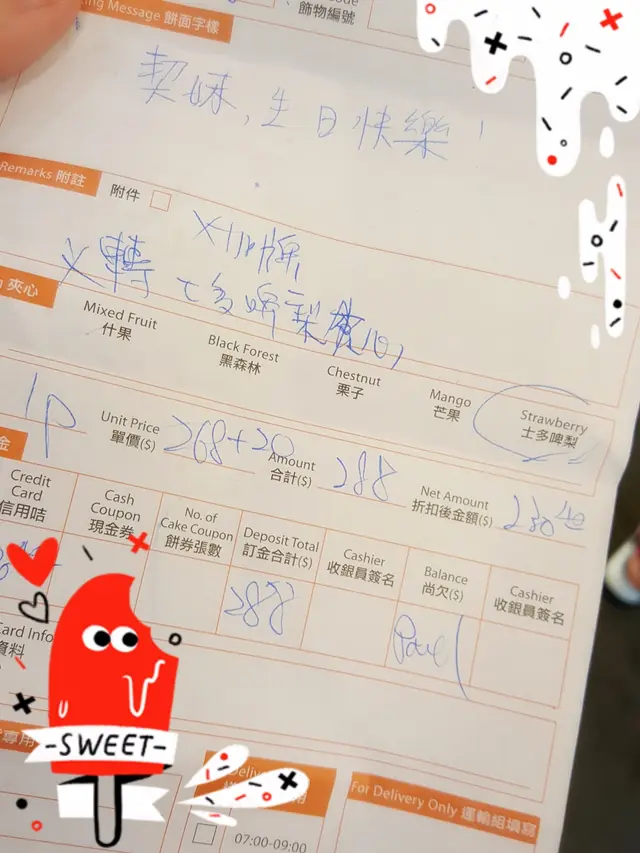 ing Message 餅面字樣
飾物編號
契妹, 生日快樂!
Remarks 附註
附件
X 轉 士多啤梨
夾心
Mixed Fruit
什果
Black Forest
黑森林
Chestnut
栗子
Mango
芒果
Strawberry
士多啤梨
1P
Unit Price
單價($)
268+20
Amount
合計($)
288
Net Amount
折扣後金額($)
230.40
金
Credit Card
信用咭
Cash Coupon
現金券
No. of Cake Coupon
餅券張數
Deposit Total
訂金合計($)
Cashier
收銀員簽名
Balance
尚欠($)
Cashier
收銀員簽名
288
Card Info
資料
-SWEET-
專用
07:00-09:00
For Delivery Only 運輸組填寫